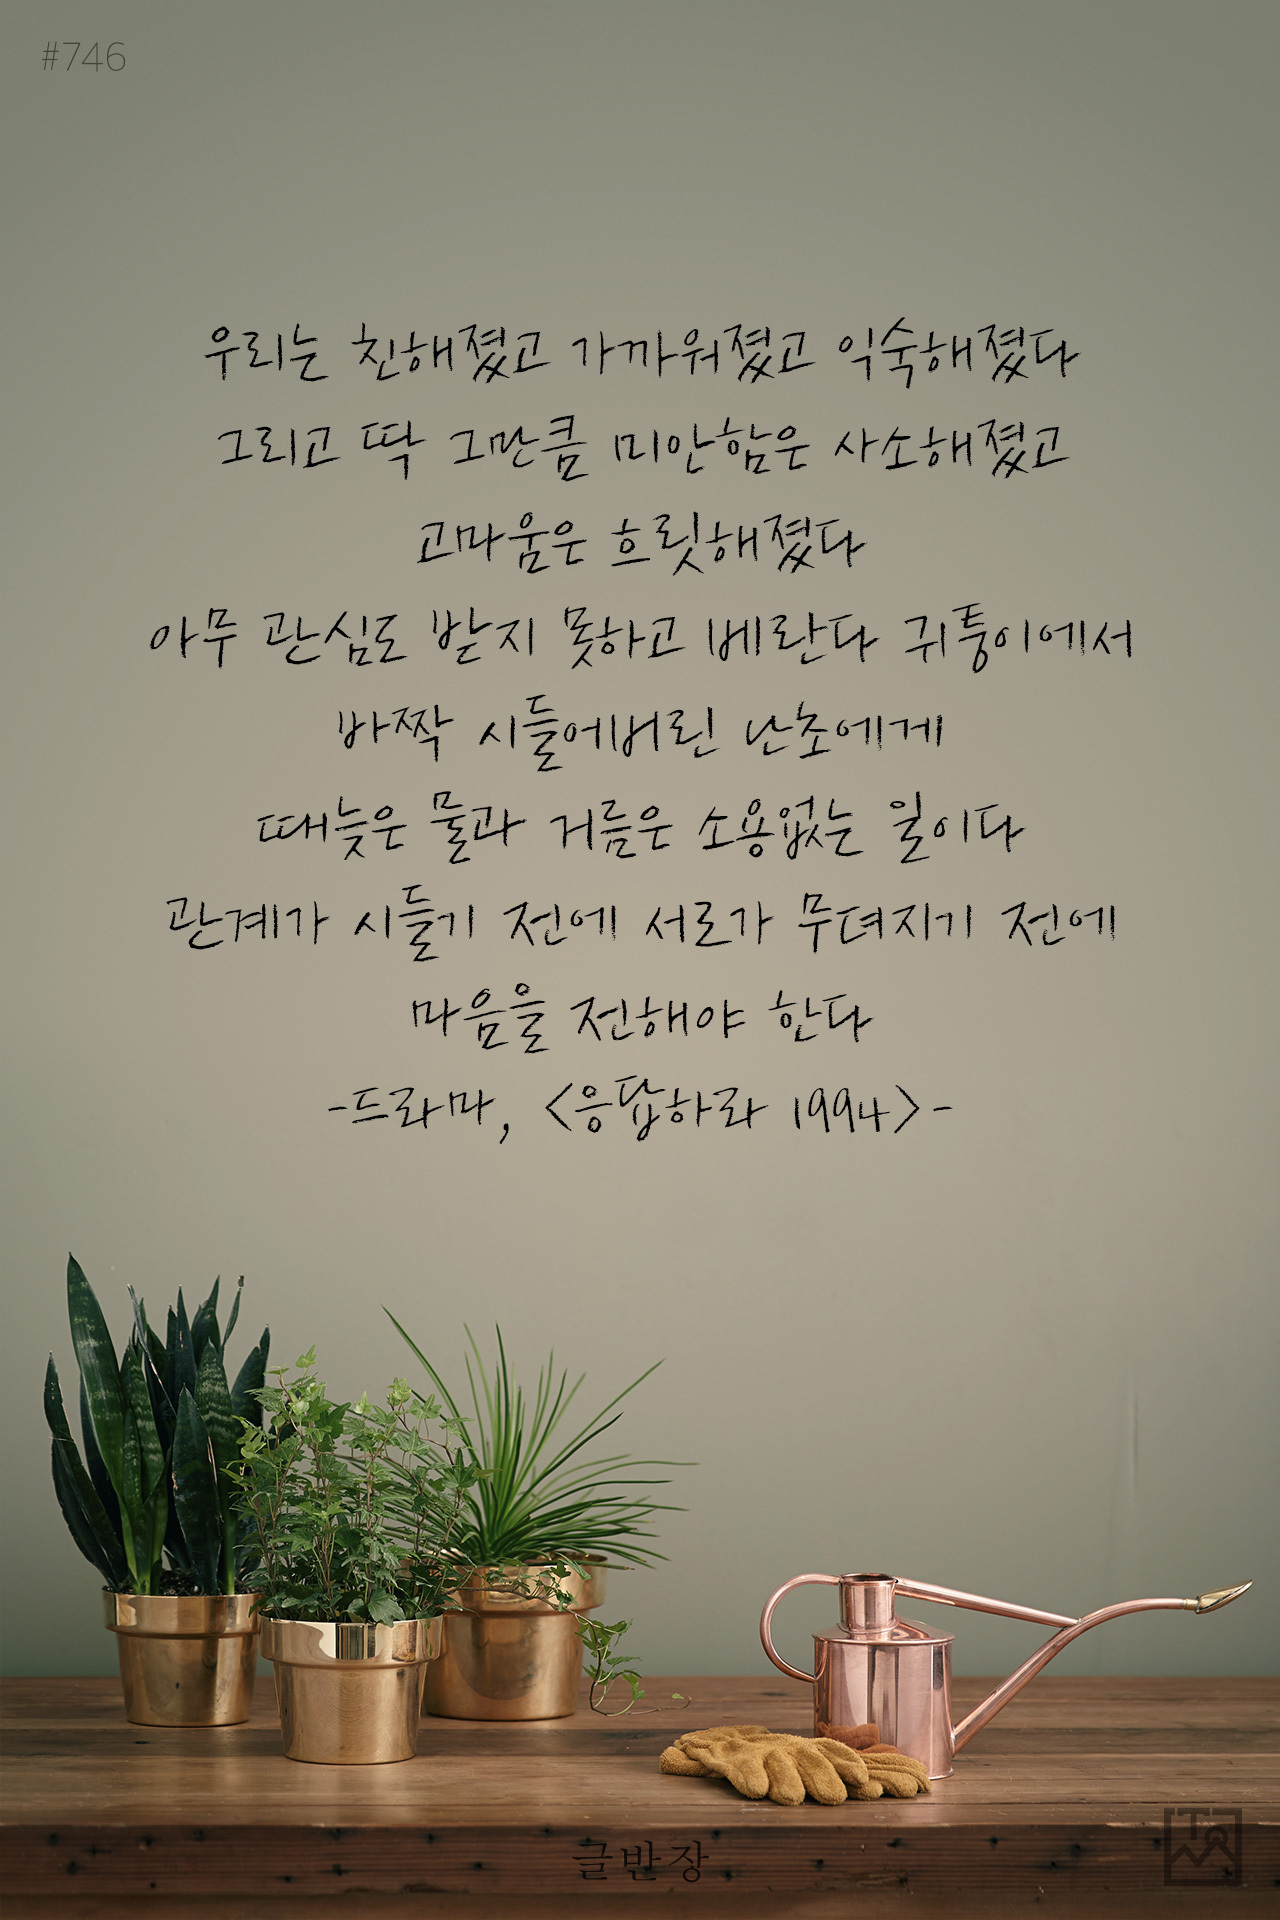 #746
우리는 친해졌고 가까워졌고 익숙해졌다
그리고 딱 그만큼 미안함은 사소해졌고
고마움은 흐릿해졌다
아무 관심도 받지 못하고 베란다 귀퉁이에서
바짝 시들에버린 난초에게
때늦은 물과 거름은 소용없는 일이다
관계가 시들기 전에 서로가 무뎌지기 전에
마음을 전해야 한다
-드라마, <응답하라 1994>-
글반장